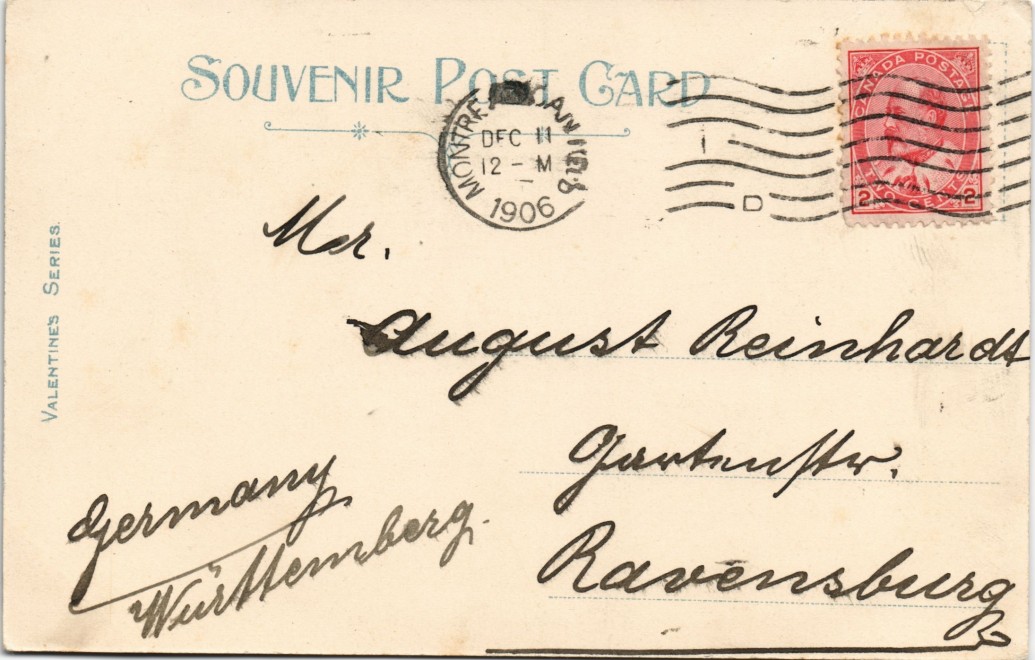 SOUVENIR POST CARD
MONTREAL CANADA
DEC 11
12 - M
1906
I
D
CANADA POSTAGE
2 TWO CENTS 2
Mr.
August Reinhardt
Gartenstr.
Ravensburg
Germany
Württemberg.
VALENTINE'S SERIES.